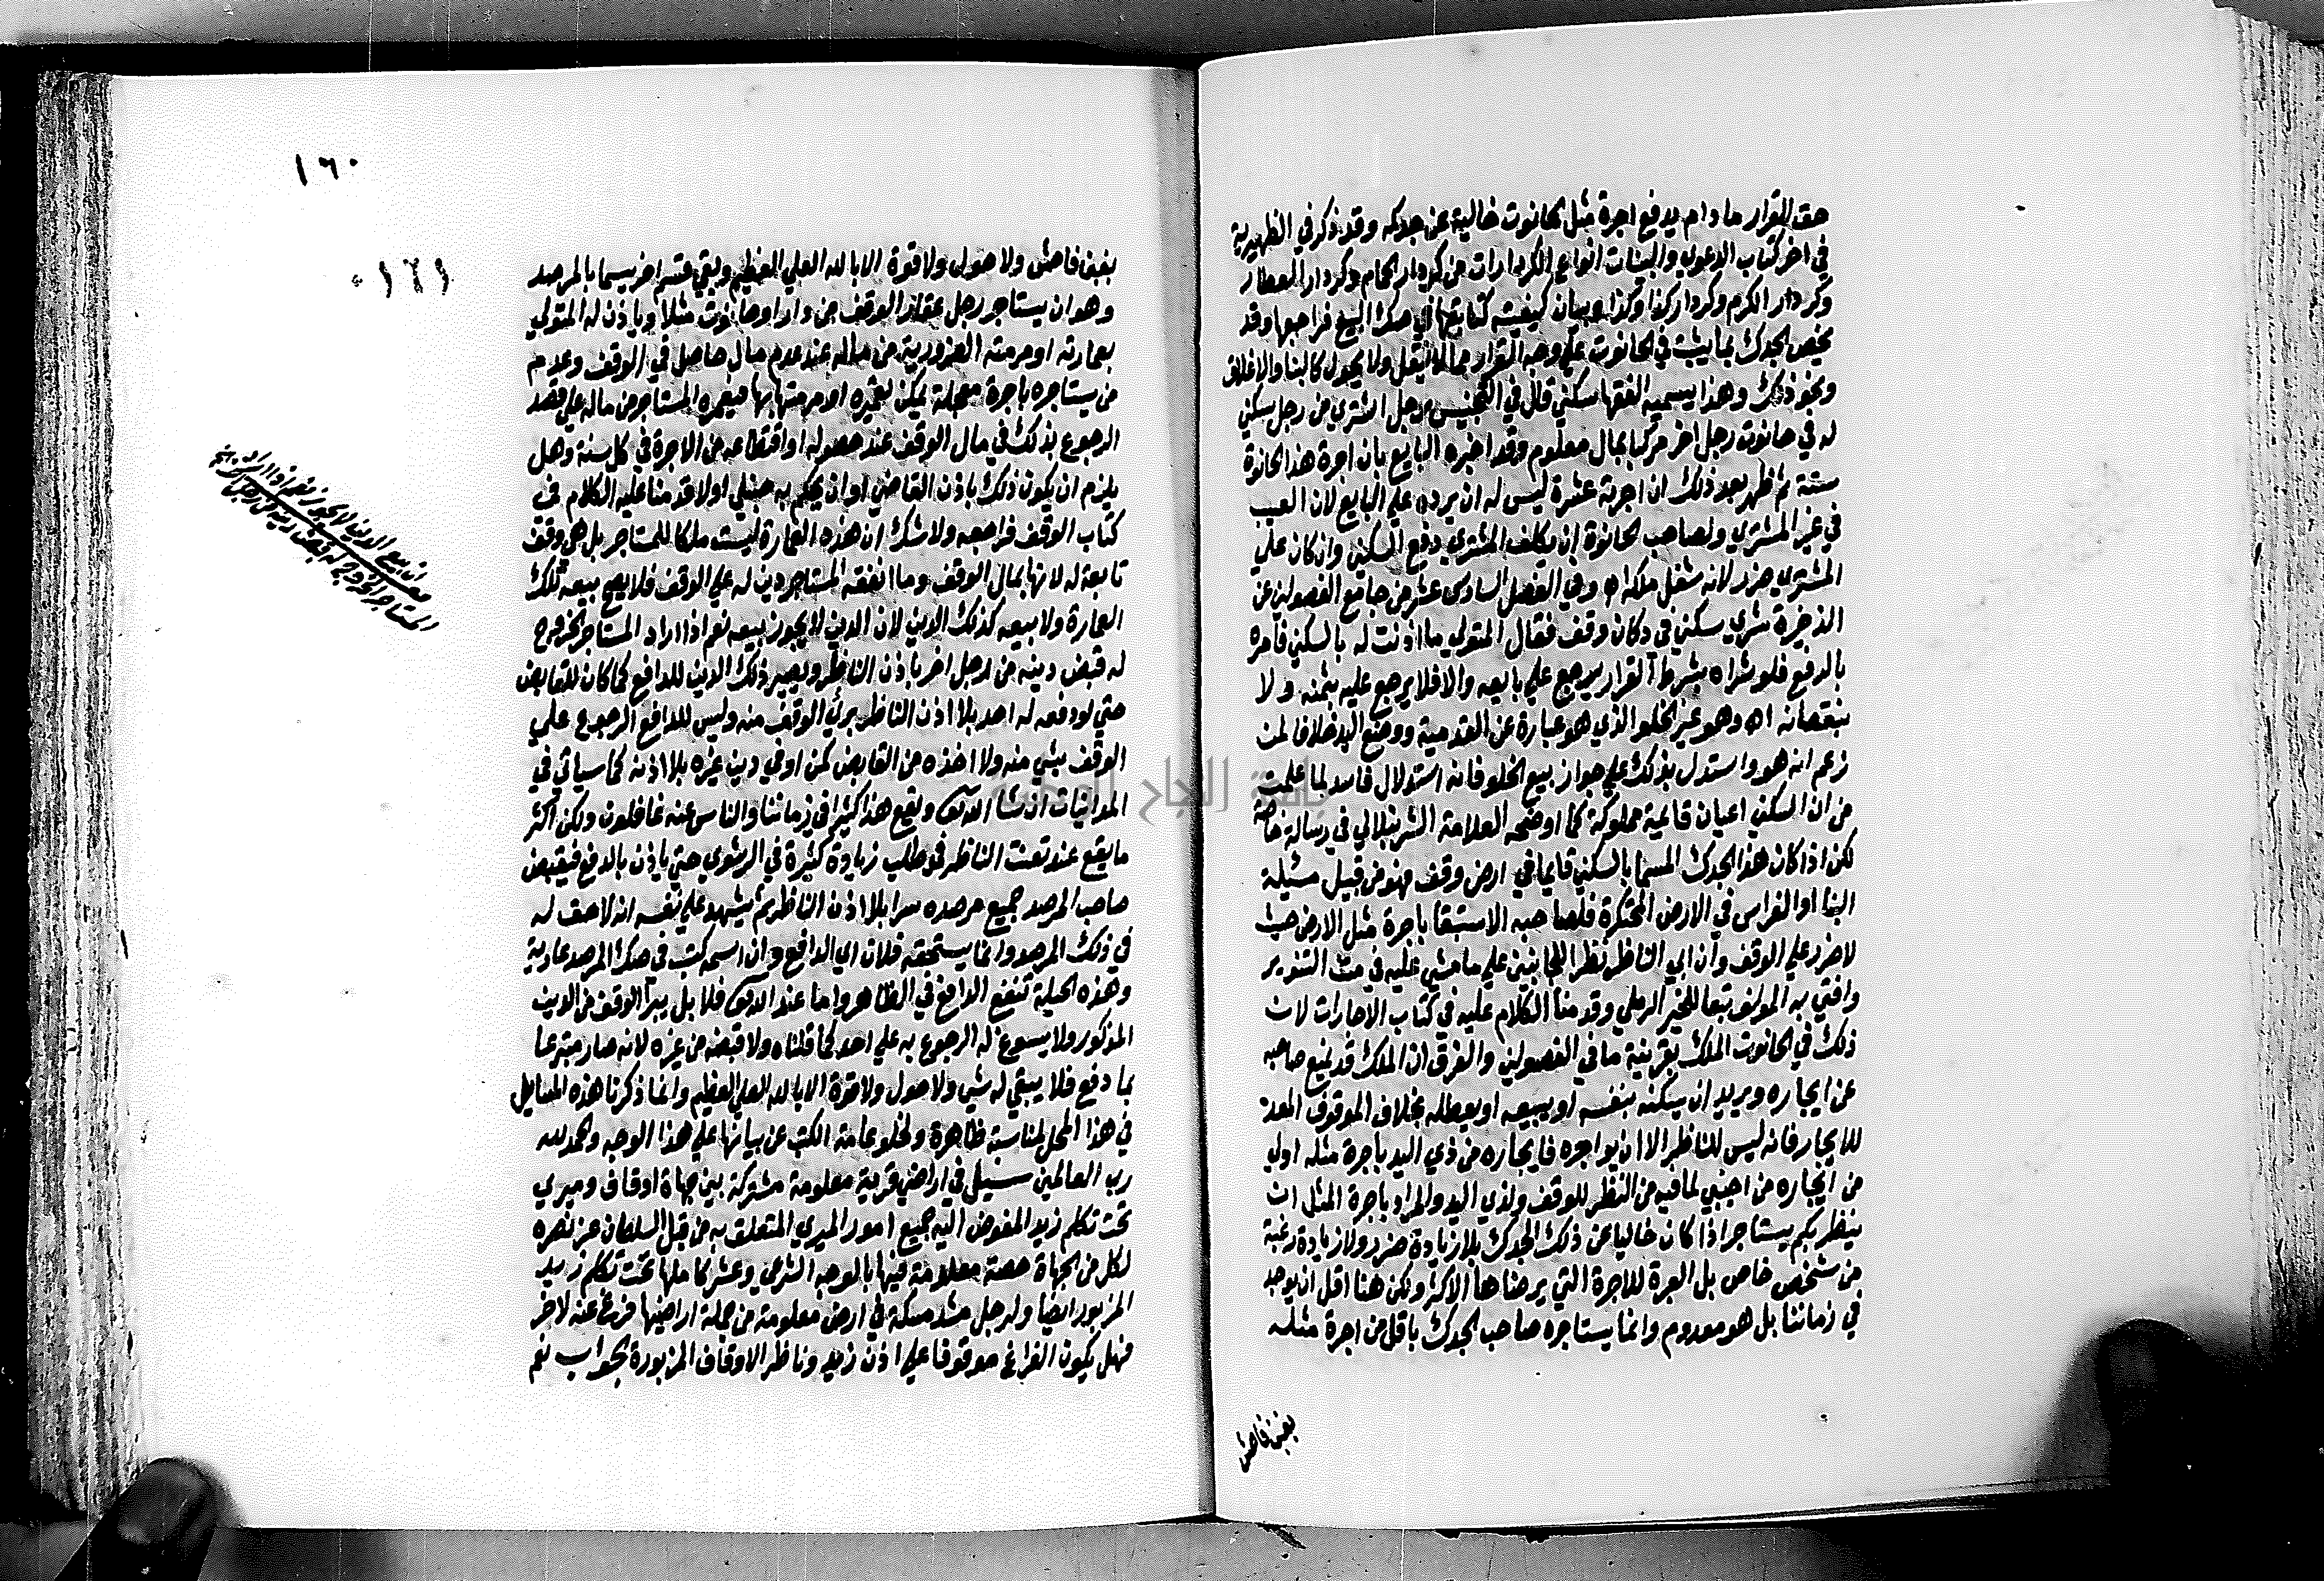 حق القرار ما دام يدفع اجرة مثل الحانوت خالية عن جدكه وقد ذكر في الظهيرية
في اخر كتاب الدعوي والبينات انواع الكردارات من كردار الحمام وكردار العطار
وكردار الكرم وكردار كذا وكذا وبيان كيفية كتابتها في صك البيع فراجعها وقد
يخص الجدك بما يثبت في الحانوت علي وجه القرار مما لا ينقل ولا يحول كالبنا والاغلاق
ونحو ذلك وهذا يسميه الفقها سكني قال في التجنيس رجل اشتري من رجل سكني
له في حانوت رجل اخر مركبا بمال معلوم وقد اخبره البايع بان اجرة هذا الحانوة
ستة ثم ظهر بعد ذلك ان اجرته عشرة ليس له ان يرده علي البايع لان العيب
في غير المشتري ولصاحب الحانوة ان يكلف المشتري دفع السكني وان كان علي
المشتري ضرر لانه شغل ملكه اه وفي الفصل السادس عشر من جامع الفصولين عن
الذخيرة شري سكني في دكان وقف فقال المتولي ما اذنت له بالسكني فامره
بالدفع فلو شراه بشرط القرار يرجع علي بايعه والا فلا يرجع عليه بثمنه ولا
بنقصانه اه وهو غير الخلو الذي هو عبارة عن القدمية ووضع اليد خلافا لمن
زعم انه هو واستدل بذلك علي جواز بيع الخلو فانه استدلال فاسد لما علمت
من ان السكني اعيان قائمة مملوكة كما اوضحه العلامة الشرنبلالي في رسالة خاصة
لكن اذا كان هذا الجدك المسما بالسكني قايما في ارض وقف فهو من قبيل مسئلة
البنا او الغراس في الارض المحتكرة فلصاحبه الاستبقا باجرة مثل الارض حيث
لا ضرر علي الوقف وان ابي الناظر نظرا للجانبين علي ما مشي عليه في متن التنوير
وافتي به المولف تبعا للخير الرملي وقدمنا الكلام عليه في كتاب الاجارات لان
ذلك في الحانوت الملك بقرينة ما في الفصولين والفرق ان الملك قد يمنع صاحبه
عن ايجاره ويريد ان يسكنه بنفسه او يبيعه او يعطله بخلاف الموقوف المعد
للايجار فانه ليس للناظر الا ان يواجره فايجاره من ذي اليد باجرة مثله اولي
من ايجاره من اجنبي لما فيه من النظر للوقف ولذي اليد والمراد باجرة المثل ان
ينظر بكم يستاجر اذا كان خاليا عن ذلك الجدك بلا زيادة ضرر ولا زيادة رغبة
من شخص خاص بل العبرة للاجرة التي يرضاها الاكثر ولكن هنا اقل ان يوجد
في زماننا بل هو معدوم وانما يستاجره صاحب الجدك باقل من اجرة مثله
بغبن فاحش
١٦٠
١٦١
بغبن فاحش ولا حول ولا قوة الا بالله العلي العظيم وبقي قسم اخر يسما بالمرصد
وهو ان يستاجر رجل عقار الوقف من دار او حانوت مثلا وياذن له المتولي
بعمارته او مرمته الضرورية من ماله عند عدم مال حاصل في الوقف وعدم
من يستاجره باجرة معجلة يمكن تعميره او مرمتها بها فيعمره المستاجر من ماله علي قصد
الرجوع بذلك في مال الوقف عند حصوله او اقتطاعه من الاجرة في كل سنة وهل
يلزم ان يكون ذلك باذن القاضي او ان يحكم به حنبلي اولا قدمنا عليه الكلام في
كتاب الوقف فراجعه ولا شك ان هذه العمارة ليست ملكا للمستاجر بل هي وقف
تابعة له لانها بمال الوقف وما انفقه المستاجر دين له علي الوقف فلا يصح بيعه تلك
العمارة ولا بيعه كذلك الدين لان الدين لا يجوز بيعه نعم اذا اراد المستاجر الخروج
له قبض دينه من رجل اخر باذن الناظر ويصير ذلك الدين للدافع كما كان للقابض
حتي لو دفعه له احد بلا اذن الناظر بري الوقف منه وليس للدافع الرجوع علي
الوقف بشي منه ولا اخذه من القابض كمن اوفي دين غيره بلا اذنه كما سياتي في
المداينات ان شا الله تعالى ويقع هذا كثيرا في زماننا والناس عنه غافلون ولكن اكثر
ما يقع عند تعنت الناظر في طلب زيادة كثيرة في الرشوي حتي ياذن بالدفع فيقبض
صاحب المرصد جميع مرصده سرا بلا اذن الناظر ثم يشهد علي نفسه انه لا حق له
في ذلك المرصد وانما يستحقه فلان اي الدافع وان اسمه كتب في صك المرصد عارية
وهذه الحيلة تنفع الدافع في الظاهر واما عند الله تعالى فلا بل يبرا الوقف من الدين
المذكور ولا يسوغ له الرجوع به علي احد كما قلناه ولا قبضه من غيره لانه صار متبرعا
بما دفع فلا يبقي له شي ولا حول ولا قوة الا بالله العلي العظيم وانما ذكرنا هذه المسايل
في هذا المحل لمناسبة ظاهرة ولخلو عامة الكتب عن بيانها علي هذا الوجه والحمد لله
رب العالمين سئيل في اراضي قرية معلومة مشتركة بين جهاة اوقاف وميري
تحت تكلم زيد المفوض اليه جميع امور الميري المتعلق به من قبل السلطان عز نصره
لكل من الجهاة حصة معلومة فيها بالوجه الشرعي وعشر كاملها تحت تكلم زيد
المزبور ايضا ولرجل مشد مسكة في ارض معلومة من جملة اراضيها فرغ عنه لاخر
فهل يكون الفراغ موقوفا علي اذن زيد وناظر الاوقاف المزبورة الجواب نعم